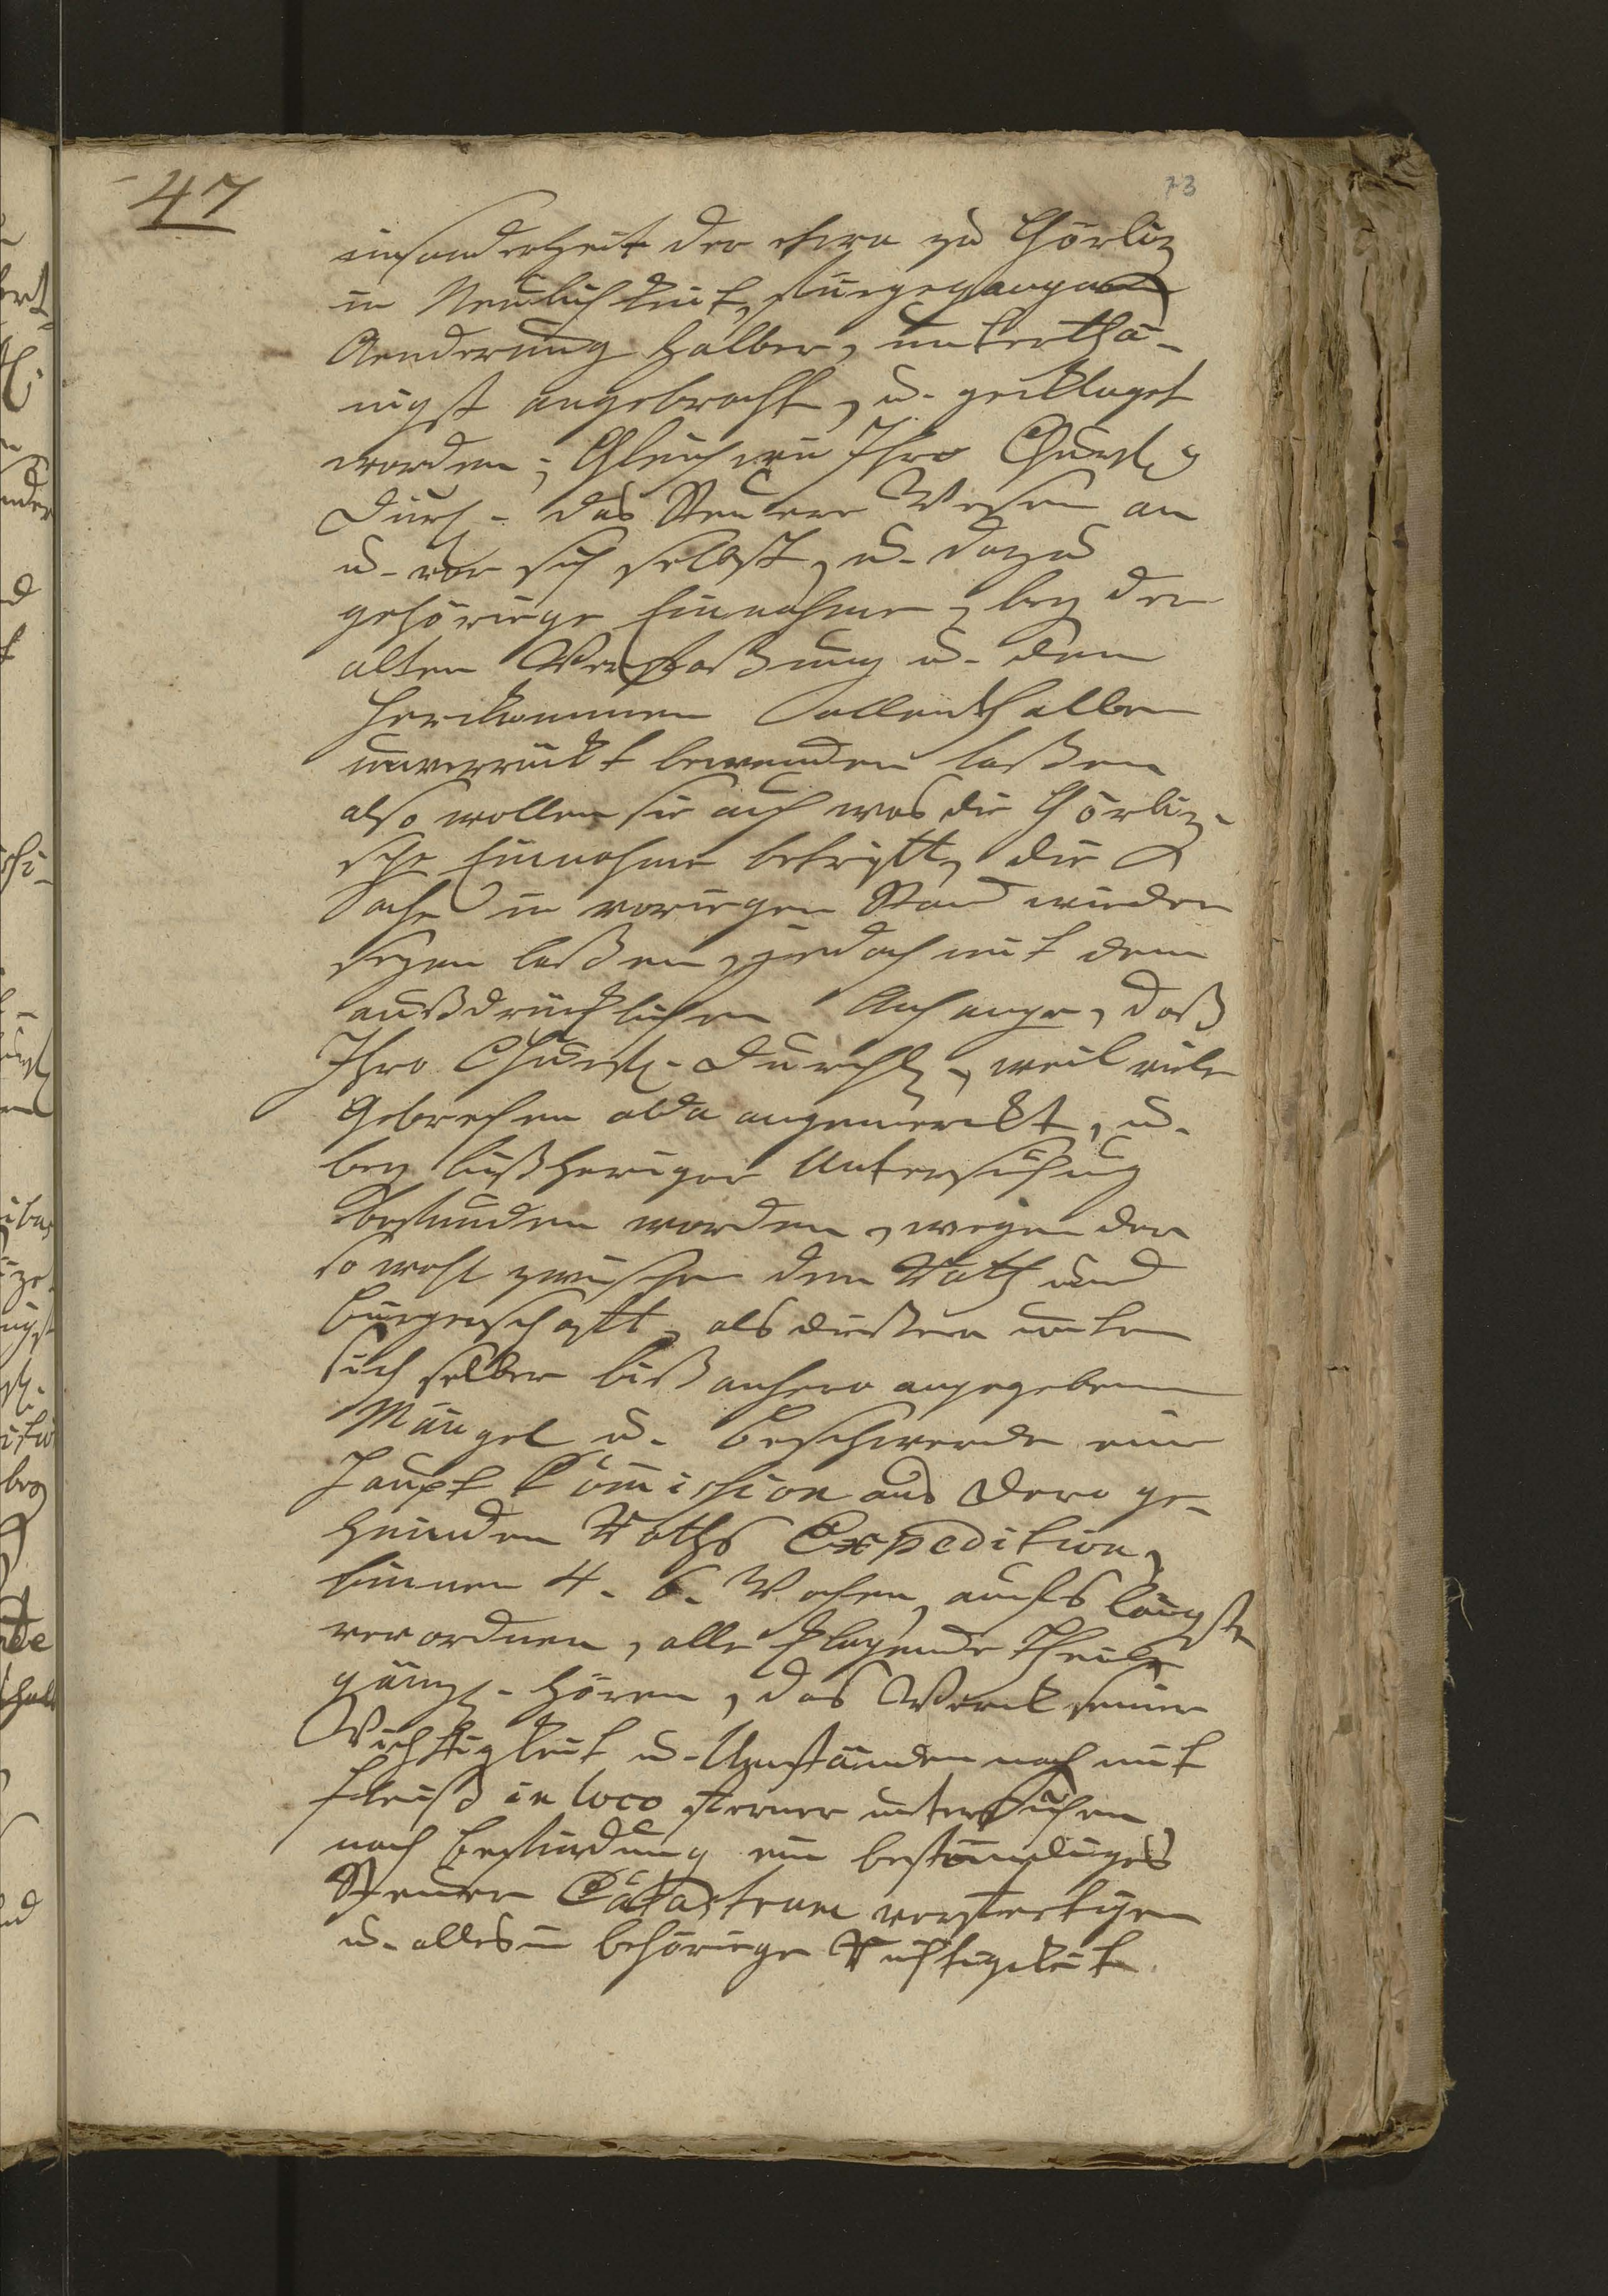 47
73
insonderheit der etwa zu Görliz
in Neulichkeit, fürgegangenen
Aenderung halber, unterthä-
nigst angebracht, u. geklaget
worden; Gleich wie Ihro Churfl.
Durchl. das Steuer Wesen an
u. vor sich selbst, u. dazu
gehörige Einnahme, bey der
alten Verfaßung u. dem
Herkommen allenthalben
unverrückt bewenden laßen
also wollen sie auch was die Görliz-
sche Einnahme betrifft, die
Sache in vorigen Stand wieder
sezen laßen, jedoch mit dem
außdrücklichen Anhange, daß
Ihro Churfl. Durchl., weil viele
Gebrechen alda angemerckt, u.
bey bißheriger Untersuchung
befunden worden, wegen der
so wohl zwischen dem Rath und
Bürgerschafft, als dießen unter
sich selber biß anhero angegebenen
Mängel u. Beschwerde eine
Haupt Commission aus Dero ge-
heimden Raths Expedition,
binnen 4. 6. Wochen, aufs längste
verordnen, alle klagende Theile
gänzl. hören, das Werck seiner
Wichtigkeit u. Umständen nach mit
Fleiß in loco ferner untersuchen,
nach Befindung ein beständiges
Steuer Catastrum verfertigen
u. alles in behörige Richtigkeit